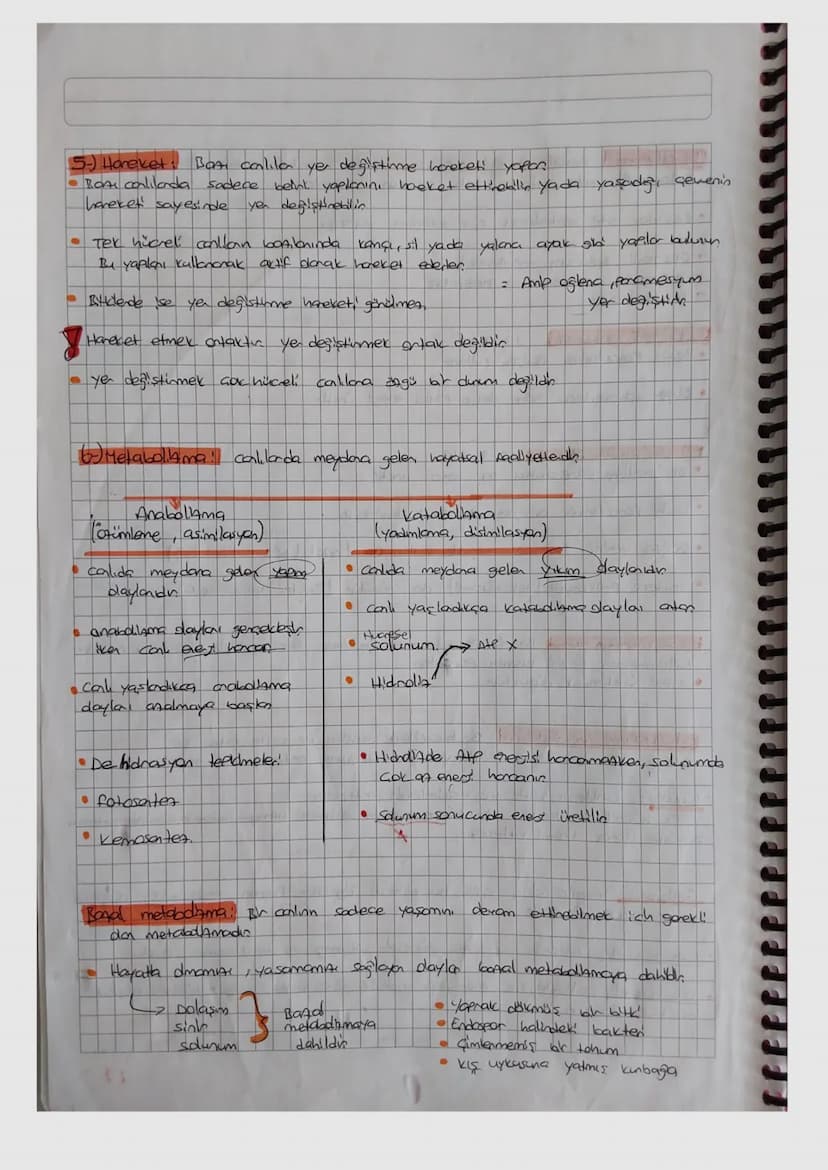 5-) Hareket: Bazı canlılar yer değiştirme hareketi yapar.
• Bazı canlılarda sadece belirli yapılarını hareket ettirebilir yada yaşadığı çevrenin
hareketi sayesinde yer değiştirebilir
• Tek hücreli canlıların bazılarında kamçı, sil yada yalancı ayak gibi yapılar bulunur.
Bu yapıları kullanarak aktif olarak hareket ederler.
= Amip öglena, paramesyum
yer değiştirir.
• Bitkilerde ise yer değiştirme hareketi görülmez.
! Hareket etmek ortaktır yer değiştirmek ortak değildir
• yer değiştirmek çok hücreli canlılara özgü bir durum değildir
6-) Metabolizma: canlılarda meydana gelen hayatsal faaliyetlerdir
Anabolizma
(özümleme, asimilasyon)
• canlıda meydana gelen yapım
olaylarıdır
• anabolizma olayları gerçekleşir
iken canlı enerji harcar
• Canlı yaşlandıkça anabolizma
olayları azalmaya başlar
• Dehidrasyon tepkimeleri
• fotosentez
• kemosentez.
Katabolizma
(yadımlama, disimilasyon)
• canlıda meydana gelen yıkım olaylarıdır
• canlı yaşlandıkça katabolizma olayları artar
• Hücresel
solunum. → ATP X
• Hidroliz
• Hidrolizde ATP enerjisi harcanmazken, solunumda
çok az enerji harcanır
• solunum sonucunda enerji üretilir
Bazal metabolizma: Bir canlının sadece yaşamını devam ettirebilmek için gerekli
olan metabolizmadır
• Hayatta olmamızı, yaşamamızı sağlayan olaylar bazal metabolizmaya dahildir.
→ Dolaşım
sinir
solunum
} Bazal
metabolizmaya
dahildir
• Yaprak dökmüş bir bitki
• Endospor halindeki bakteri
• Çimlenmemiş bir tohum
• kış uykusuna yatmış kurbağa